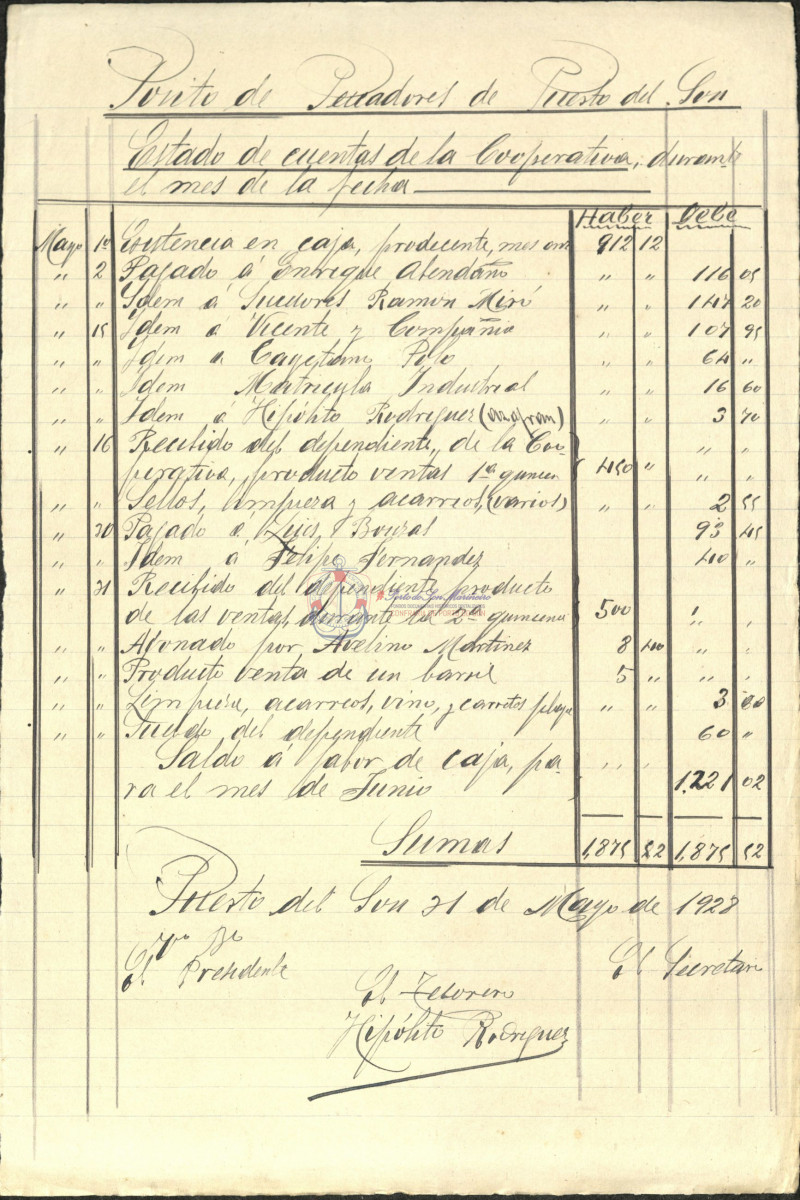 Posito de Pescadores de Puerto del Son
Estado de cuentas de la Cooperativa, durante
el mes de la fecha
Haber Debe
Mayo 1º Existencia en caja, prodecente, mes an 912 12
" 2 Pagado á Enrique Abendaño " " 116 05
" " Idem á Sucesores Ramon Miró " " 147 20
" 15 Idem á Vicente y Compañia " " 107 95
" " Idem a Cayetano Polo " " 64 "
" " Idem Matricula Industrial " " 16 60
" " Idem á Hipólito Rodriguez (azafran) " " 3 70
" 16 Recibido del dependiente, de la Coo- " "
perativa, producto ventas 1ª quincen 450 " " "
" " Sellos, limpieza y acarreos, (varios) " " 2 55
" 20 Pagado a Luis Bouzas 93 45
" " Idem á Felipe Fernandez 40 "
" 31 Recibido del dependiente producto
de las ventas, durante la 2ª quincena 500 " "
Porto do Son Mariñeiro
" " Abonado por Avelino Martinez 8 40 " "
" " Producto venta de un barril 5 " " "
" " Limpieza, acarreos, vino, y carretos playa " " 3 00
" " Sueldo del dependiente 60 "
Saldo á fabor de caja, pa- " "
ra el mes de Junio 1.221 02
Sumas 1,875 52 1,875 52
Puerto del Son 31 de Mayo de 1928
Vº Bº
El Presidente
El Secretario
El Tesorero
Hipólito Rodriguez